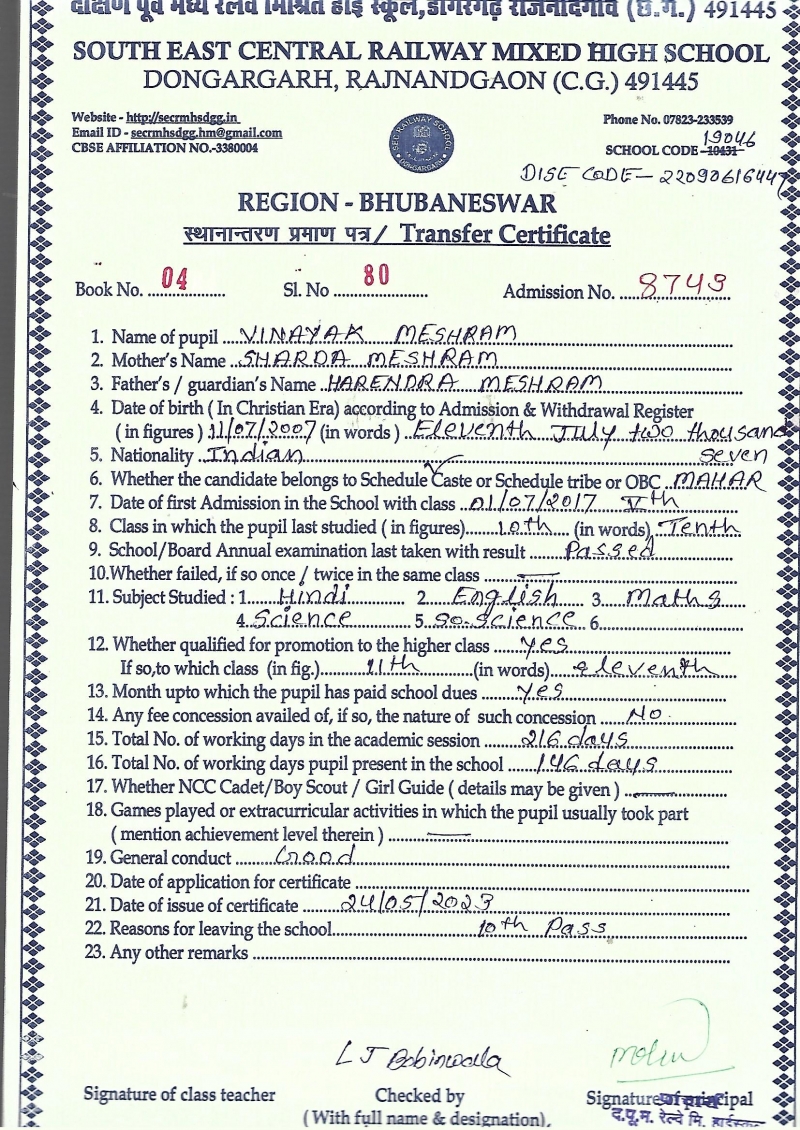 दक्षिण पूर्व मध्य रेलवे मिश्रित हाई स्कूल, डोंगरगढ़ राजनांदगांव (छ.ग.) 491445
SOUTH EAST CENTRAL RAILWAY MIXED HIGH SCHOOL
DONGARGARH, RAJNANDGAON (C.G.) 491445
Website - http://secrmhsdgg.in
Email ID - secrmhsdgg.hm@gmail.com
CBSE AFFILIATION NO.-3380004
SEC RAILWAY SCHOOL
DONGARGARH
Phone No. 07823-233539
19046
SCHOOL CODE - 10431
DISE CODE - 22090616447
REGION - BHUBANESWAR
स्थानान्तरण प्रमाण पत्र / Transfer Certificate
Book No. 04 Sl. No 80 Admission No. 8743
1. Name of pupil VINAYAK MESHRAM
2. Mother's Name SHARDA MESHRAM
3. Father's / guardian's Name HARENDRA MESHRAM
4. Date of birth ( In Christian Era) according to Admission & Withdrawal Register
( in figures ) 11/07/2007 (in words ) Eleventh July two thousand
seven
5. Nationality Indian
6. Whether the candidate belongs to Schedule Caste or Schedule tribe or OBC MAHAR
7. Date of first Admission in the School with class 01/07/2017 Vth
8. Class in which the pupil last studied ( in figures) 10th (in words) Tenth
9. School/Board Annual examination last taken with result Passed
10.Whether failed, if so once / twice in the same class
11. Subject Studied : 1. Hindi 2. English 3. Maths
4. Science 5. so.science 6.
12. Whether qualified for promotion to the higher class yes
If so,to which class (in fig.) 11th (in words) eleventh
13. Month upto which the pupil has paid school dues yes
14. Any fee concession availed of, if so, the nature of such concession No.
15. Total No. of working days in the academic session 216 days
16. Total No. of working days pupil present in the school 146 days
17. Whether NCC Cadet/Boy Scout / Girl Guide ( details may be given )
18. Games played or extracurricular activities in which the pupil usually took part
( mention achievement level therein )
19. General conduct Good
20. Date of application for certificate
21. Date of issue of certificate 24/05/2023
22. Reasons for leaving the school 10th Pass
23. Any other remarks
L J Bobinwala
Signature of class teacher Checked by Signature of principal
(With full name & designation),
द.पू.म. रेल्वे मि. हाईस्कूल